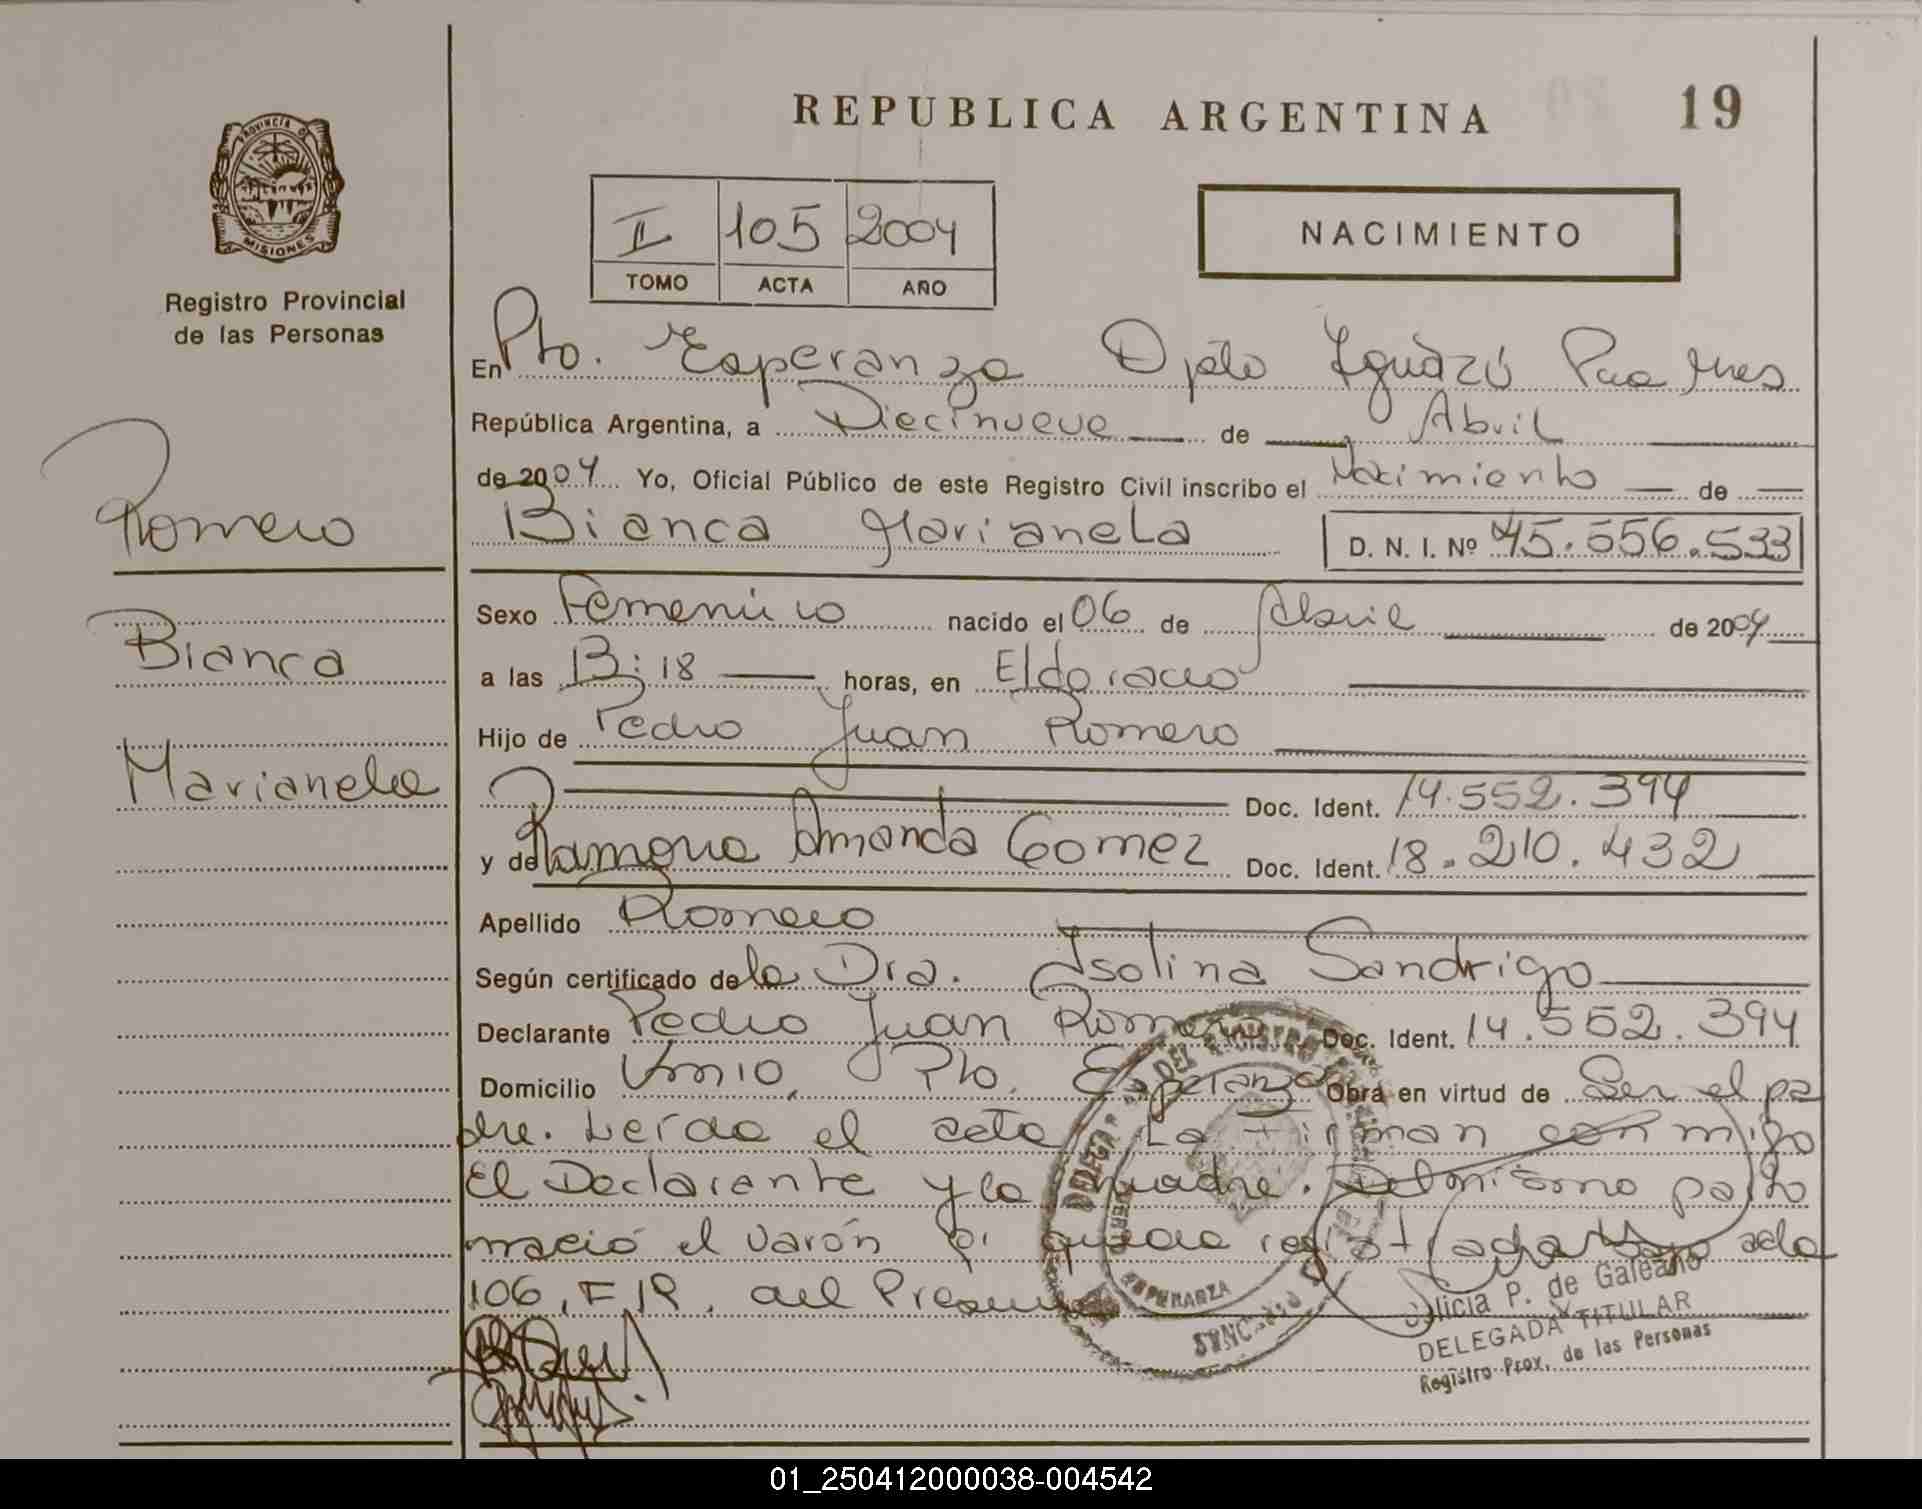 REPUBLICA ARGENTINA
19
PROVINCIA DE
MISIONES
Registro Provincial
de las Personas
II 105 2004
TOMO ACTA AÑO
NACIMIENTO
Romero
Bianca
Marianela
En Pto. Esperanza Dpto Iguazú Pcia Mnes
República Argentina, a Diecinueve de Abril
de 2004 Yo, Oficial Público de este Registro Civil inscribo el Nacimiento de
Bianca Marianela D. N. I. Nº 45.556.533
Sexo Femenino nacido el 06 de Abril de 2004
a las 13:18 horas, en Eldorado
Hijo de Pedro Juan Romero
Doc. Ident. 14.552.394
y de Ramona Amanda Gomez Doc. Ident. 18.210.432
Apellido Romero
Según certificado de la Dra. Isolina Sandrigo
Declarante Pedro Juan Romero Doc. Ident. 14.552.394
Domicilio Pto. Esperanza Obra en virtud de Ser el pa
dre. Leída el acta La firman conmigo
El Declarante y la madre. Del mismo parto
nació el varón q. queda registrado bajo acta
106, F 19, del Presente
Alicia P. de Galeano
DELEGADA TITULAR
Registro Prov. de las Personas
01_250412000038-004542